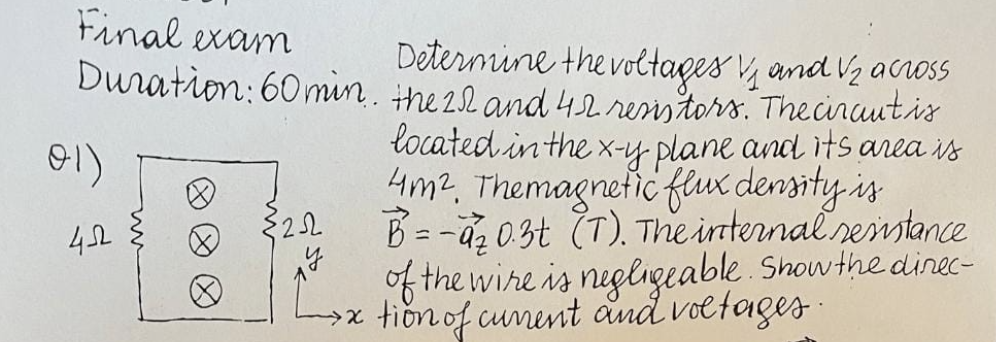 Final exam
Duration: 60 min.
Determine the voltages V₁ and V₂ across
the 2Ω and 4Ω resistors. The circuit is
located in the x-y plane and its area is
4m². The magnetic flux density is
B⃗ = -a⃗z 0.3t (T). The internal resistance
of the wire is negligeable. Show the direc-
tion of current and voltages.
Q1)
4Ω
2Ω
y
x